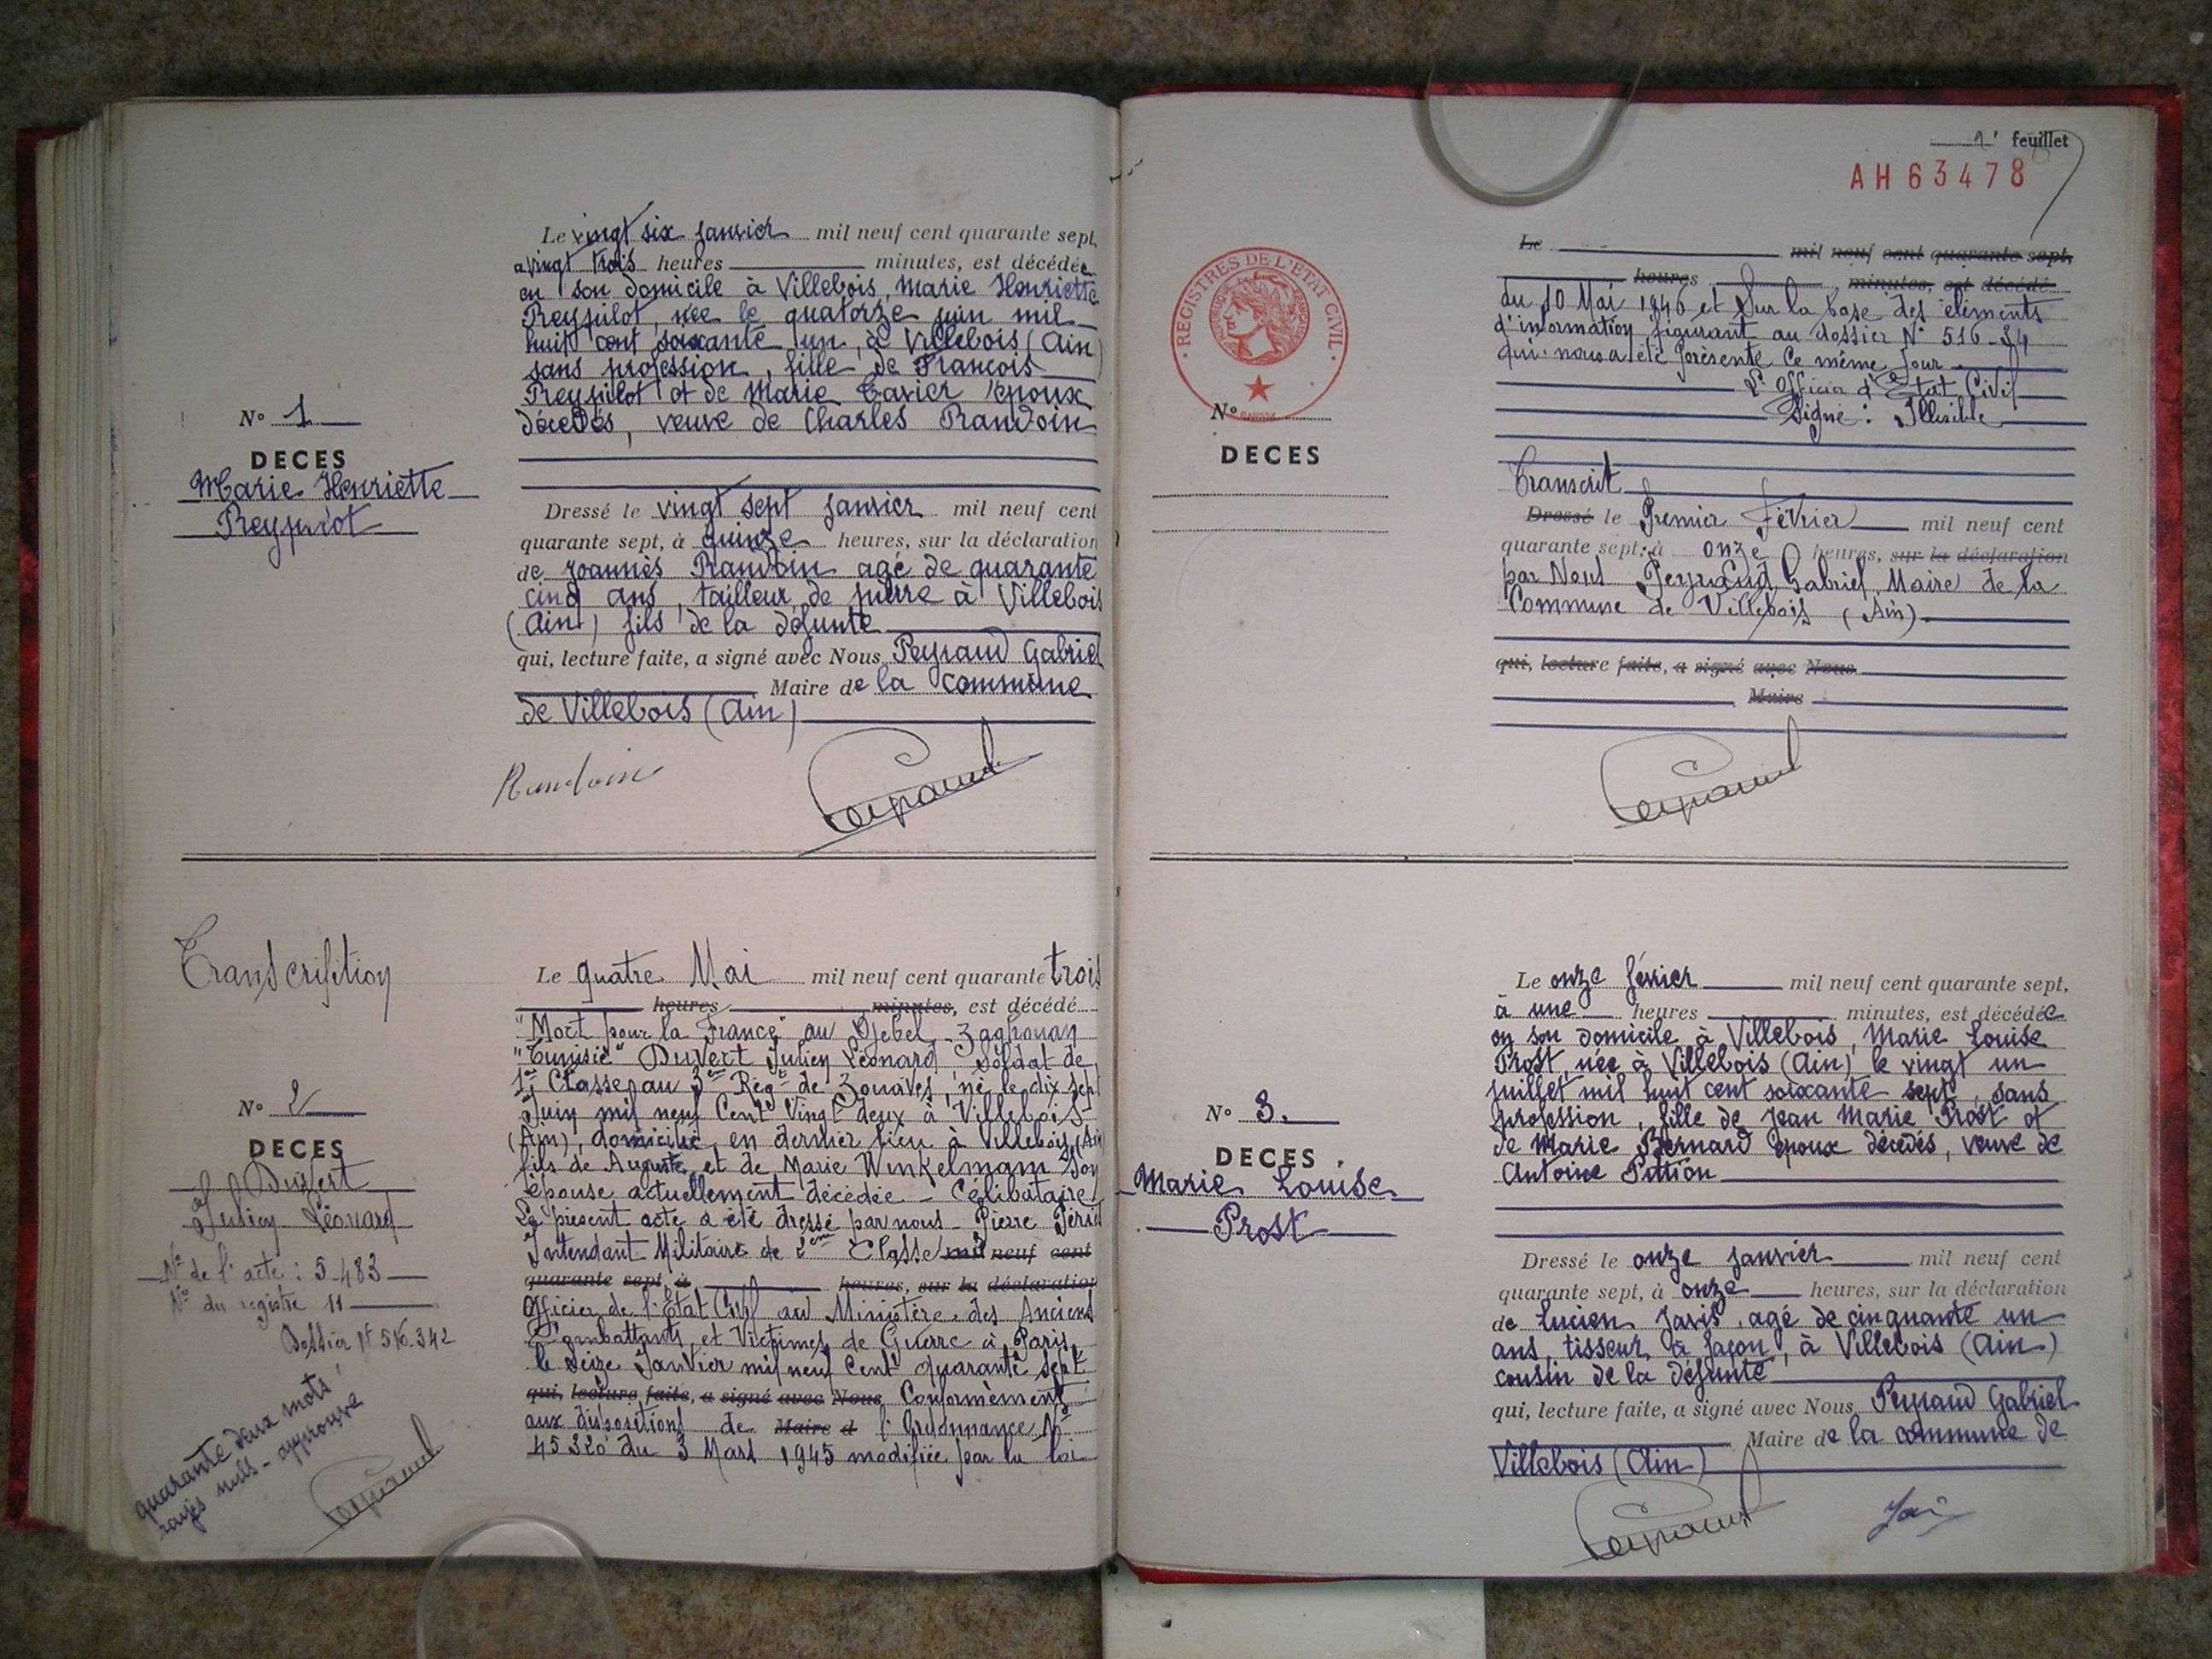 Le vingt six janvier mil neuf cent quarante sept,
a vingt trois heures minutes, est décédée
en son domicile à Villebois, Marie Henriette
née le quatorze juin mil
huit cent soixante un, à Villebois (Ain)
sans profession, fille de François
et de Marie Tavier époux
décédés, veuve de Charles Raudoin
N° 1
DECES
Marie Henriette
Dressé le vingt sept janvier mil neuf cent
quarante sept, à quinze heures, sur la déclaration
de Joannès Raudoin agé de quarante
cinq ans, tailleur de pierre à Villebois
(Ain) fils de la défunte
qui, lecture faite, a signé avec Nous Peyraud Gabriel
Maire de la commune
de Villebois (Ain)
Raudoin
Peyraud
Transcription
Le quatre Mai mil neuf cent quarante trois
heures minutes, est décédé
"Mort pour la France" au Djebel Zaghouan
"Tunisie" Duvert Julien Léonard Soldat de
1re Classe au 3ème Régt de Zouaves, né le dix sept
Juin mil neuf Cent Vingt deux à Villebois
(Ain), domicilié en dernier lieu à Villebois (Ain)
fils de Auguste et de Marie Winkelmam Son
épouse actuellement décédée - Célibataire
Le présent acte a été dressé par nous - Pierre
Intendant Militaire de 2ème Classe mil neuf cent
quarante sept, à heures, sur la déclaration
Officier de l'Etat Civil au Ministère des Anciens
Combattants et Victimes de Guerre à Paris
le Seize Janvier mil neuf Cent quarante sept
qui, lecture faite, a signé avec Nous Conformément
aux dispositions de Maire d l'Ordonnance N°
45 320 du 3 Mars 1945 modifiée par la loi
N° 2
DECES
Duvert
Julien Léonard
N° de l'acte : 5-483
N° du registre 11
Dossier N° 516.342
quarante deux mots
rayés nuls - approuvé
Peyraud
1' feuillet
AH 63478
REGISTRES DE L'ÉTAT CIVIL
Le mil neuf cent quarante sept,
heures minutes, est décédé
du 10 Mai 1946 et Sur la base des éléments
d'information figurant au dossier N° 516-34
qui nous a été présenté Ce même Jour
L'Officier d'Etat Civil
Signé : Illisible
N°
DECES
Transcrit
Dressé le Premier Février mil neuf cent
quarante sept, à onze heures, sur la déclaration
par Nous Peyraud Gabriel Maire de la
Commune de Villebois (Ain)
qui, lecture faite, a signé avec Nous
Maire
Peyraud
Le onze février mil neuf cent quarante sept,
à une heures minutes, est décédée
en son domicile à Villebois, Marie Louise
Prost, née à Villebois (Ain) le vingt un
juillet mil huit cent soixante sept, sans
profession, fille de Jean Marie Prost et
de Marie Bernard époux décédés, veuve de
Antoine
N° 3.
DECES
Marie Louise
Prost
Dressé le onze janvier mil neuf cent
quarante sept, à onze heures, sur la déclaration
de Lucien agé de cinquante un
ans, tisseur à façon, à Villebois (Ain)
cousin de la défunte
qui, lecture faite, a signé avec Nous Peyraud Gabriel
Maire de la commune de
Villebois (Ain)
Peyraud